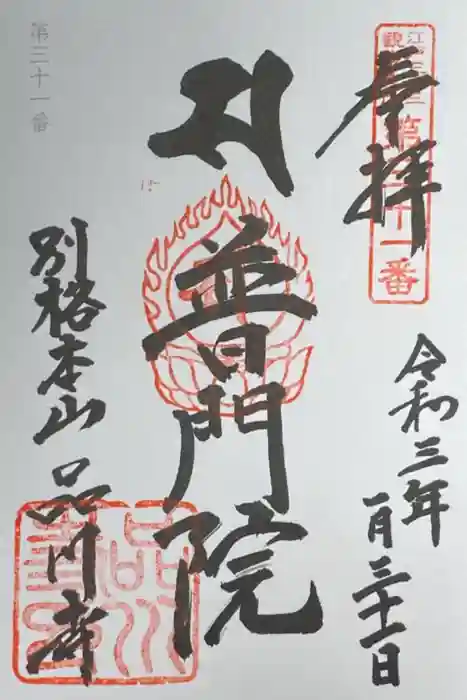 奉拝
江戸三十三
第三十一番
令和三年
一月三十一日
普門院
第三十一番
別格本山 品川寺